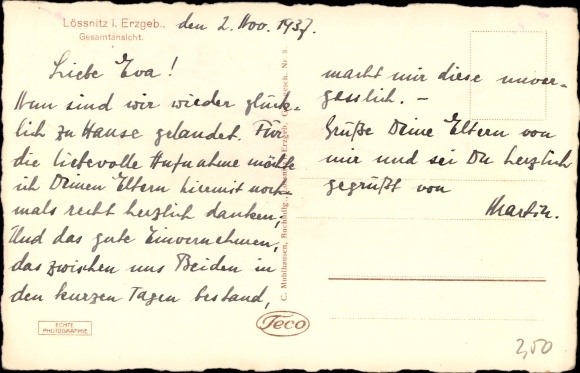 Lössnitz i. Erzgeb.,
Gesamtansicht.
den 2. Nov. 1937.
Liebe Eva!
Nun sind wir wieder glück-
lich zu Hause gelandet. Für
die liebevolle Aufnahme möchte
ich Deinen Eltern hiermit noch-
mals recht herzlich danken,
Und das gute Einvernehmen,
das zwischen uns Beiden in
den kurzen Tagen bestand,
macht mir diese unver-
gesslich. –
Grüße Deine Eltern von
mir und sei Du herzlich
gegrüßt von
Martin.
C. Mühlhausen, Buchhdlg., Erzgeb. Nr. 8
ECHTE
PHOTOGRAPHIE
Teco
2,50